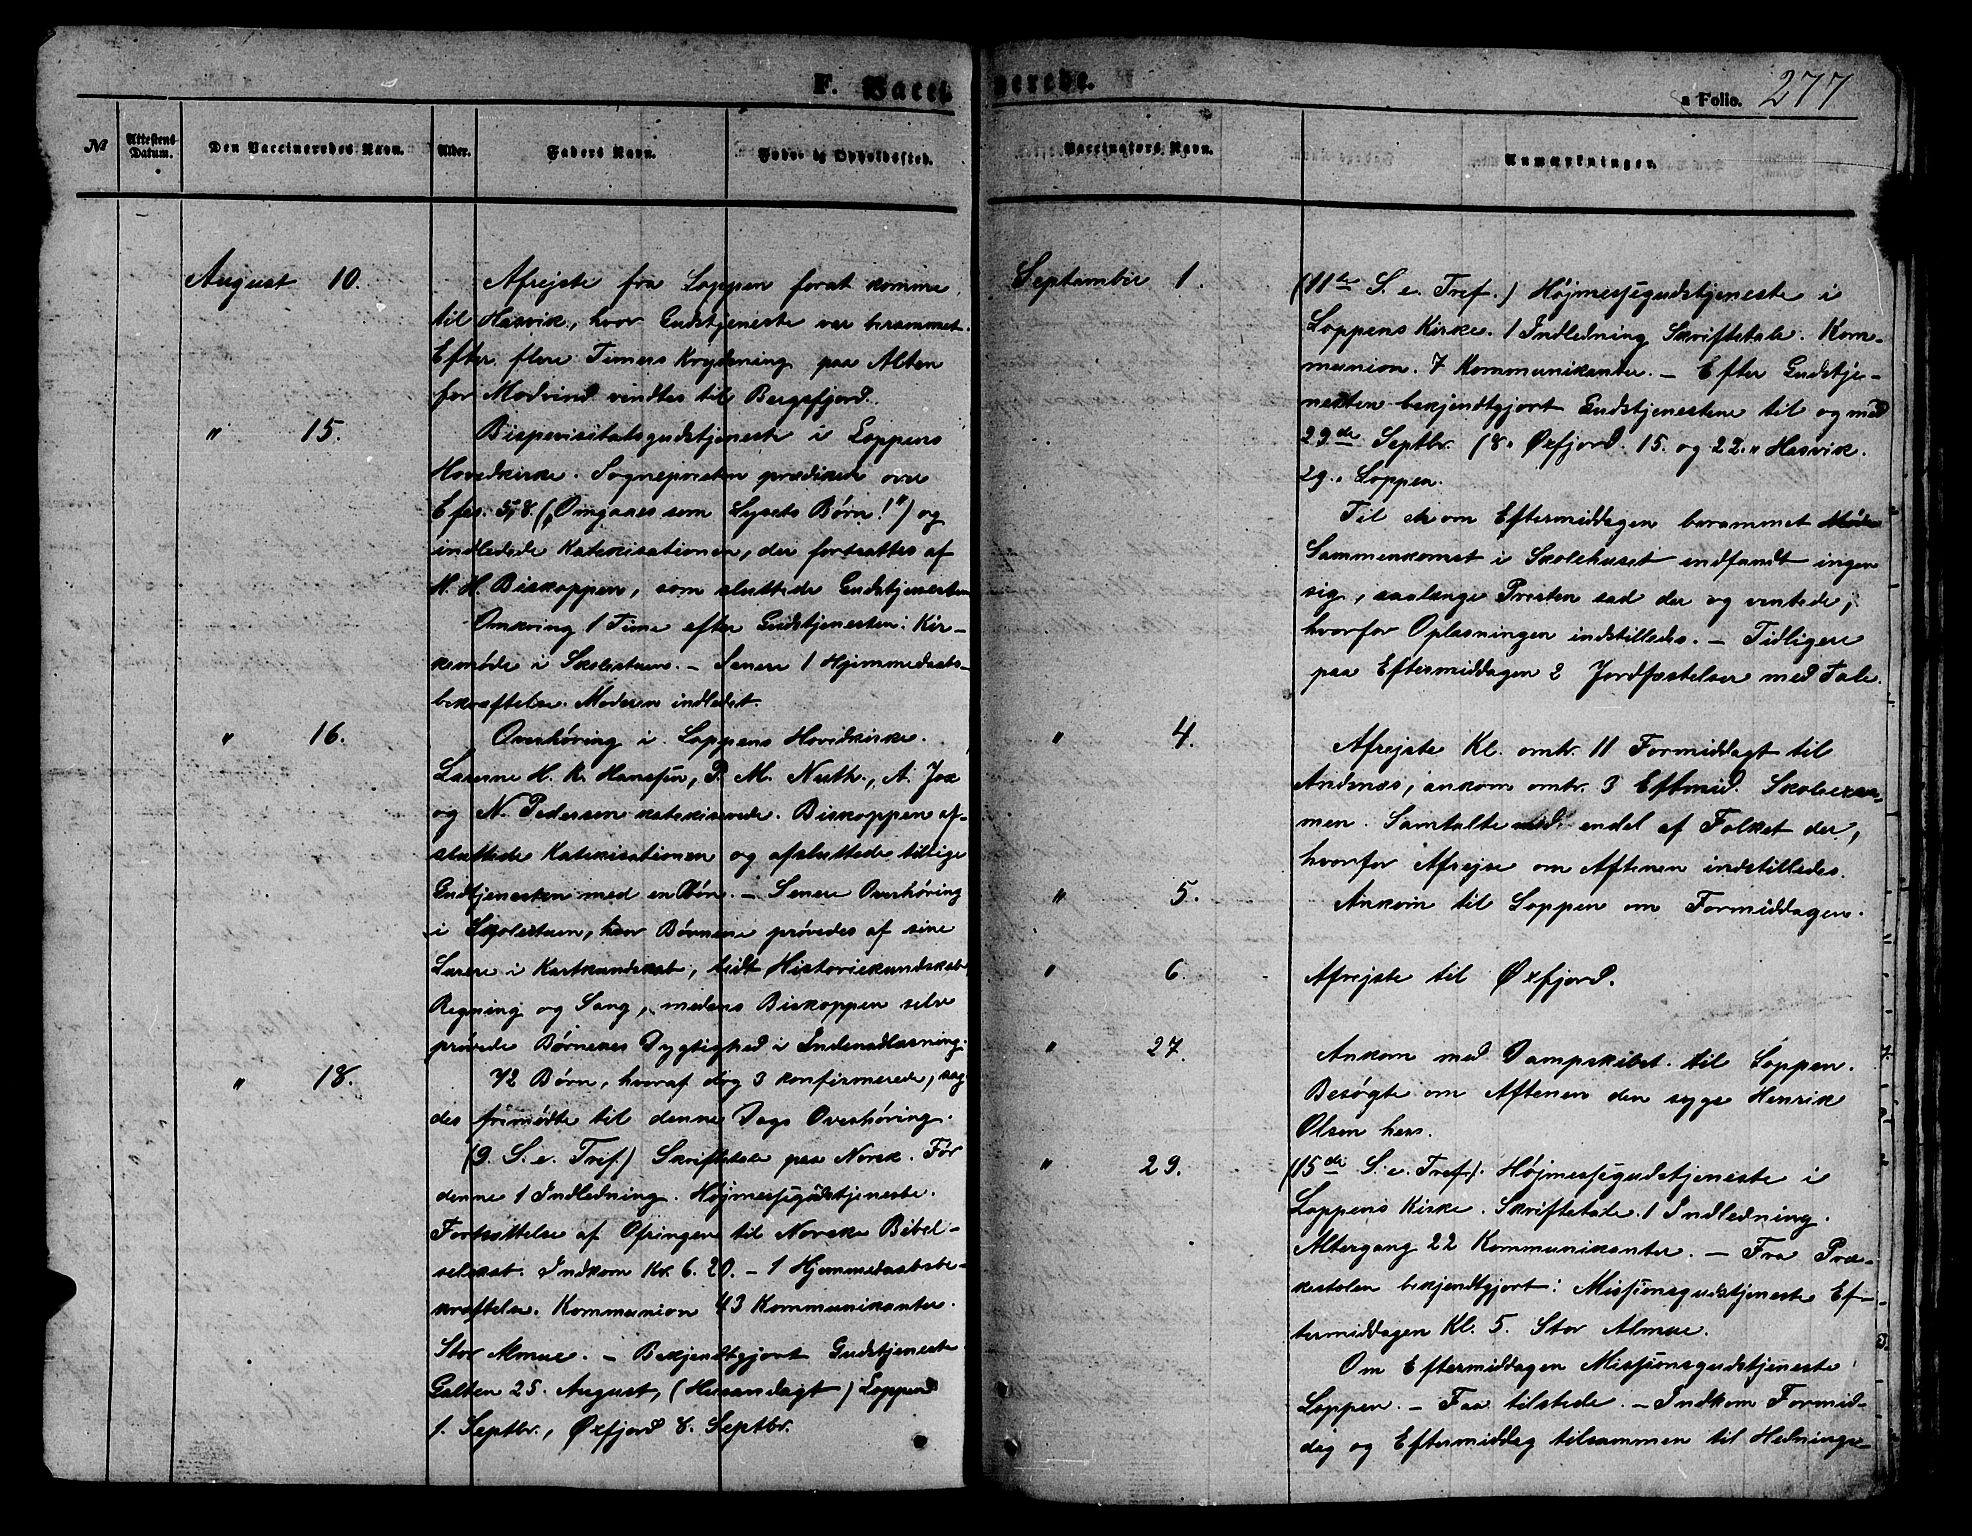 F. Vacci
nerede.
a Folio. 277
№
Attestens Datum.
Den Vaccineredes Navn.
Alder.
Faders Navn.
Føde- og Opholdssted.
Vaccinators Navn.
Anmærkninger.
August 10. Afrejste fra Loppen forat komme
til Hasvik, hvor Gudstjeneste var berammet.
Efter flere Timers Krydsning paa Alten
for Modvind vendtes til Bergsfjord.
" 15. Bispevisitatsgudstjeneste i Loppens
Hovedkirke. Sognepresten prædiken over
Efes. 5,8. („Omgaaes som Lysets Børn!") og
indledede Katekisationen, der fortsattes af
H. H. Biskoppen, som sluttede Gudstjenesten
Omkring 1 Time efter Gudstjenesten: Kir-
kemøde i Skolestuen. – Senere 1 Hjemmedaabs-
bekræftelse. Moderen indledet.
" 16. Overhøring i Loppens Hovedkirke.
Lærerne H. K. Hanssen, P. M. Nuth., A. Jox
og N. Pedersen katekiserede. Biskoppen af-
sluttede Katekisationen og afsluttede tillige
Gudtjenesten med en Bøn. – Senere Overhøring
i Skolestuen, hvor Børnene prøvedes af sine
Lærere i Kartkundskab, lidt Historiekundskab,
Regning og Sang, medens Biskoppen selv
prøvede Børnenes Dygtighed i Indenadlæsning.
72 Børn, hvoraf dog 3 konfirmerede, sag-
des frimødte til denne Dags Overhøring.
" 18. (9. S. e. Tref.) Skriftetale paa Norsk. Før
denne 1 Indledning. Højmessegudstjeneste.
Fortsættelse af Ofringen til Norske Bibel-
selskab. Indkom Kr. 6.20. – 1 Hjemmedaabsbe-
kræftelse. Kommunion 43 Kommunikanter.
Stor Almue. – Bekjendtgjort Gudstjeneste
Galten 25. August, (Husandagt) Loppen
1. Septbr., Øxfjord 8. Septbr.
September 1. (11te S. e. Tref.) Højmessegudstjeneste i
Loppens Kirke. 1 Indledning Skriftetale. Kom-
munion. 7 Kommunikanter. – Efter Gudstje-
nesten bekjendtgjort Gudstjenestene til og med
29de Septbr. (8. Øxfjord. 15. og 22. " Hasvik.
29. " Loppen.
Til om Eftermiddagen berammet
Sammenkomst i Skolehuset indfandt ingen
sig, saalænge Presten sad der og ventede,
hvorfor Oplæsningen indstilledes. – Tidligere
paa Eftermiddagen 2 Jordfæstelser med Tale.
" 4. Afrejste Kl. omtr. 11 Formiddagt til
Andnæs, ankom omtr. 3 Eftmid. Skoleexa-
men. Samtalte med endel af Folket der,
hvorfor Afrejse om Aftenen indstilledes.
" 5. Ankom til Loppen om Formiddagen.
" 6. Afrejste til Øxfjord.
" 27. Ankom med Dampskibet til Loppen.
Besøgte om Aftenen den syge Henrik
Olsen hers.
" 29. (15de S. e. Tref.). Højmessegudstjeneste i
Loppens Kirke. Skriftetale. 1 Indledning.
Altergang 22 Kommunikanter. – Fra Præ-
kestolen bekjendtgjort: Missionsgudstjeneste Ef-
termiddagen Kl. 5. Stor Almue.
Om Eftermiddagen Missionsgudstjeneste
Loppen. – Faa tilstede. – Indkom Formid-
dag og Eftermiddag tilsammen til Hedninge-